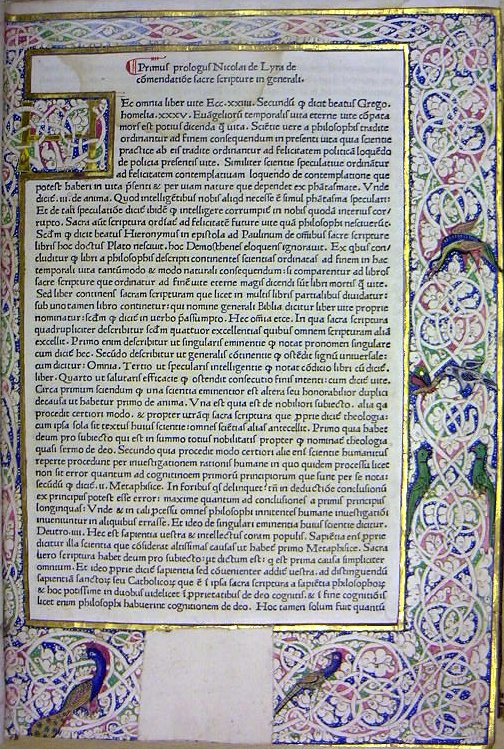 Primus prologus Nicolai de Lyra de
cōmendatiōe sacre scripture in generali.
Ec omnia liber uite Ecc. xxiii. Secundū q̃ dicit beatus Grego.
homelia. xxxv. Euāgeliorū temporalis uita eterne uite cōpata
mors est potius dicenda q̃ uita. Sciētie uero a philosophis tradite
ordinantur ad finem consequendum in presenti uita quia scientie
practice ab eis tradite ordinantur ad felicitatem politicā loquēdo
de policia presentis uite. Similiter scientie speculatiue ordināturn
ad felicitatem contemplatiuam loquendo de contemplatione que
potest haberi in uita p̄senti & per uiam nature que dependet ex phātasmate. Vnde
dicit̄. iii. de anima. Quod intelligētibus nobis aliqd necesse ē simul phātasma speculari:
Et de tali speculatiōe dicit̄ ibidē q̃ intelligere corrumpit̄ in nobis quodā interius cor⸗
rupto. Sacra aūt scriptura ordīat̄ ad felicitatē future uite quā philosophi nescierūt:
Secm̄ q̃ dicit beatus Hieronymus in epistola ad Paulinum de omībus sacre scripture
libris hoc doctus Plato nesciuit, hoc Demosthenes eloquens ignorauit. Ex qbus con⸗
cluditur q̃ libri a philosophis descripti continentes scientias ordinatas ad finem in hac
temporali uita tantūmodo & modo naturali consequendum: si comparentur ad libros
sacre scripture que ordinatur ad finē uite eterne magis dicendi sūt libri mortis q̃ uite.
Sed liber continens sacram scripturam que licet in multis libris partialibus diuidatur:
sub uno tamen libro continetur: qui nomine generali Biblia dicitur liber uite proprie
nominatur: secm̄ q̃ dicit̄ in uerbo p̄assumpto. Hec omīa etce. In qua sacra scriptura
quadrupliciter describitur secm̄ quattuor excellentias quibus omnem scripturam aliā
excellit. Primo enim describitur ut singularis eminentie q̃ notat pronomen singulare
cum dicit̄ hec. Secūdo describitur ut generalis cōtinentie q̃ ostēdit signū uniuersale:
cum dicitur: Omnia. Tertio ut specularis intelligentie q̃ notat cōdicio libri cū dicit̄.
liber. Quarto ut salutaris efficacie q̃ ostendit consecutio finis intenti: cum dicit̄ uite.
Circa primum sciendum q̃ una scientia eminentior est altera seu honorabilior duplici
decausa ut habetur primo de anima. Vna est quia est de nobiliori subiecto. alia qa
procedit certiori modo. & propter utrāq̃ sacra scriptura que p̄prie dicit̄ theologia:
cum ipsa sola sit textus huius scientie: omnes sciētias alias antecellit. Primo quia habet
deum pro subiecto qui est in summo totius nobilitatis propter q̃ nominat̄ theologia
quasi sermo de deo. Secundo quia procedit modo certiori alie enī scientie humanitus
reperte procedunt per inuestigationem rationis humane in quo quidem processu licet
non sit error quantum ad cognitionem primorū principiorum que sunt per se nota:
secūdū q̃ dicit̄. ii. Metaphisice. In foribus qs delinquet: tn̄ in deductiōe conclusionū
ex principiis potest esse error: maxime quantum ad conclusiones a primis principiis
longinquas: Vnde & in tali p̄cessu omnes philosophi innitentes humane inuestigatiōi
inueniuntur in aliquibus errasse. Et ideo de singulari eminentia huius scientie dicitur.
Deutro. iiii. Hec est sapientia uestra & intellectus coram populis. Sapiētia enī p̄prie
dicitur illa scientia que cōsiderat altissimas causas ut habet̄ primo Metaphisice. Sacra
uero scriptura habet deum pro subiecto ut dictum est: q̃ est prima causa simpliciter
omnium. Et ideo p̄prie dicit̄ sapientia sed cōuenienter addit̄ uestra. ad distinguendū
sapientiā sanctorȝ seu Catholicorȝ que ē ī ipsa sacra scriptura a sapiētia philosophorȝ
& hoc potissime in duobus uidelicet ī p̄prietatibus de deo cognitis. & ī fine cognitiōis
licet enim philosophi habuerint cognitionem de deo. Hoc tamen solum fuit quantū